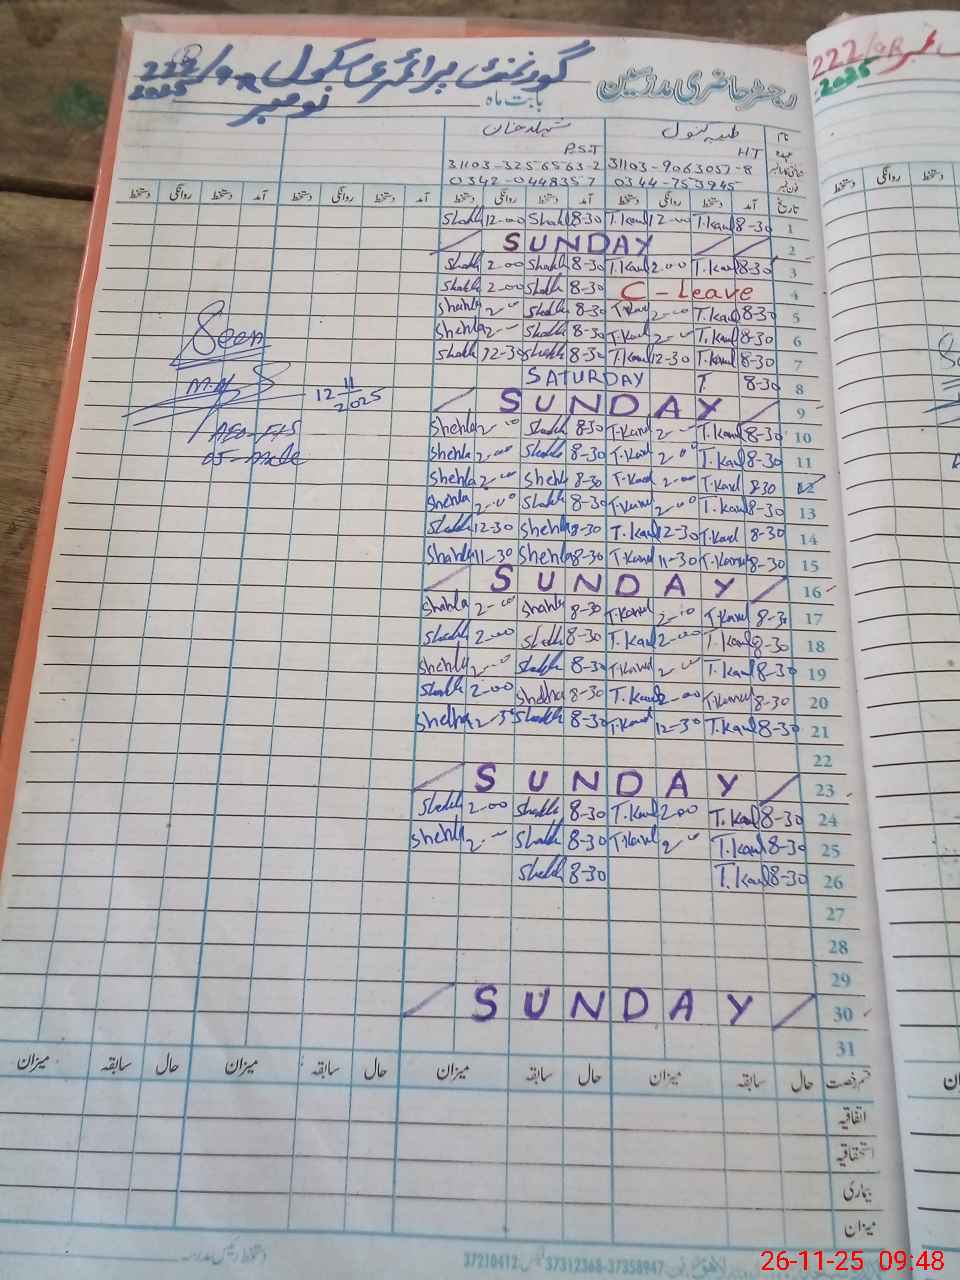 گورنمنٹ پرائمری سکول 222/9R
2025
رجسٹر حاضری مدرسین
بابت ماہ نومبر
نام طیبہ کنول شہلا خان
عہدہ H.T P.S.T
31103-9063057-8 31103-3256563-2
فون نمبر 0344-753945 0342-0448357
تاریخ آمد دستخط روانگی دستخط آمد دستخط روانگی دستخط آمد دستخط روانگی دستخط آمد دستخط روانگی دستخط
1 8-30 T.Kanwl 12-00 T.Kanwl 8-30 Shahla 12-00 Shahla
2 SUNDAY
3 8-30 T.Kanwl 2-00 T.Kanwl 8-30 Shahla 2-00 Shahla
4 C-Leave 8-30 Shahla 2-00 Shahla
5 8-30 T.Kanwl 2-00 T.Kanwl 8-30 Shahla 2-00 Shahla
6 8-30 T.Kanwl 2-00 T.Kanwl 8-30 Shahla 2-00 Shehla
7 8-30 T.Kanwl 12-30 T.Kanwl 8-30 Shahla 12-30 Shahla
8 8-30 T. SATURDAY
9 SUNDAY
10 8-30 T.Kanwl 2-00 T.Kanwl 8-30 Shahla 2-00 Shehla
11 8-30 T.Kanwl 2-00 T.Kanwl 8-30 Shahla 2-00 Shehla
12 8-30 T.Kanwl 2-00 T.Kanwl 8-30 Shehla 2-00 Shehla
13 8-30 T.Kanwl 2-00 T.Kanwl 8-30 Shahla 2-00 Shehla
14 8-30 T.Kanwl 12-30 T.Kanwl 8-30 Shehla 12-30 Shahla
15 8-30 T.Kanwl 11-30 T.Kanwl 8-30 Shehla 11-30 Shahla
16 SUNDAY
17 8-30 T.Kanwl 2-00 T.Kanwl 8-30 Shahla 2-00 Shahla
18 8-30 T.Kanwl 2-00 T.Kanwl 8-30 Shahla 2-00 Shahla
19 8-30 T.Kanwl 2-00 T.Kanwl 8-30 Shahla 2-00 Shehla
20 8-30 T.Kanwl 2-00 T.Kanwl 8-30 Shehla 2-00 Shahla
21 8-30 T.Kanwl 12-30 T.Kanwl 8-30 Shahla 2-30 Shehla
22
23 SUNDAY
24 8-30 T.Kanwl 2-00 T.Kanwl 8-30 Shahla 2-00 Shahla
25 8-30 T.Kanwl 2-00 T.Kanwl 8-30 Shahla 2-00 Shehla
26 8-30 T.Kanwl 8-30 Shahla
27
28
29
30 SUNDAY
31
Seen
12-11-2025
قسم رخصت حال سابقہ میزان حال سابقہ میزان حال سابقہ میزان حال سابقہ میزان
اتفاقیہ
استحقاقیہ
بیماری
میزان
37210412 37312368-37358947
222/9R
2025
دستخط روانگی دستخط
26-11-25 09:48